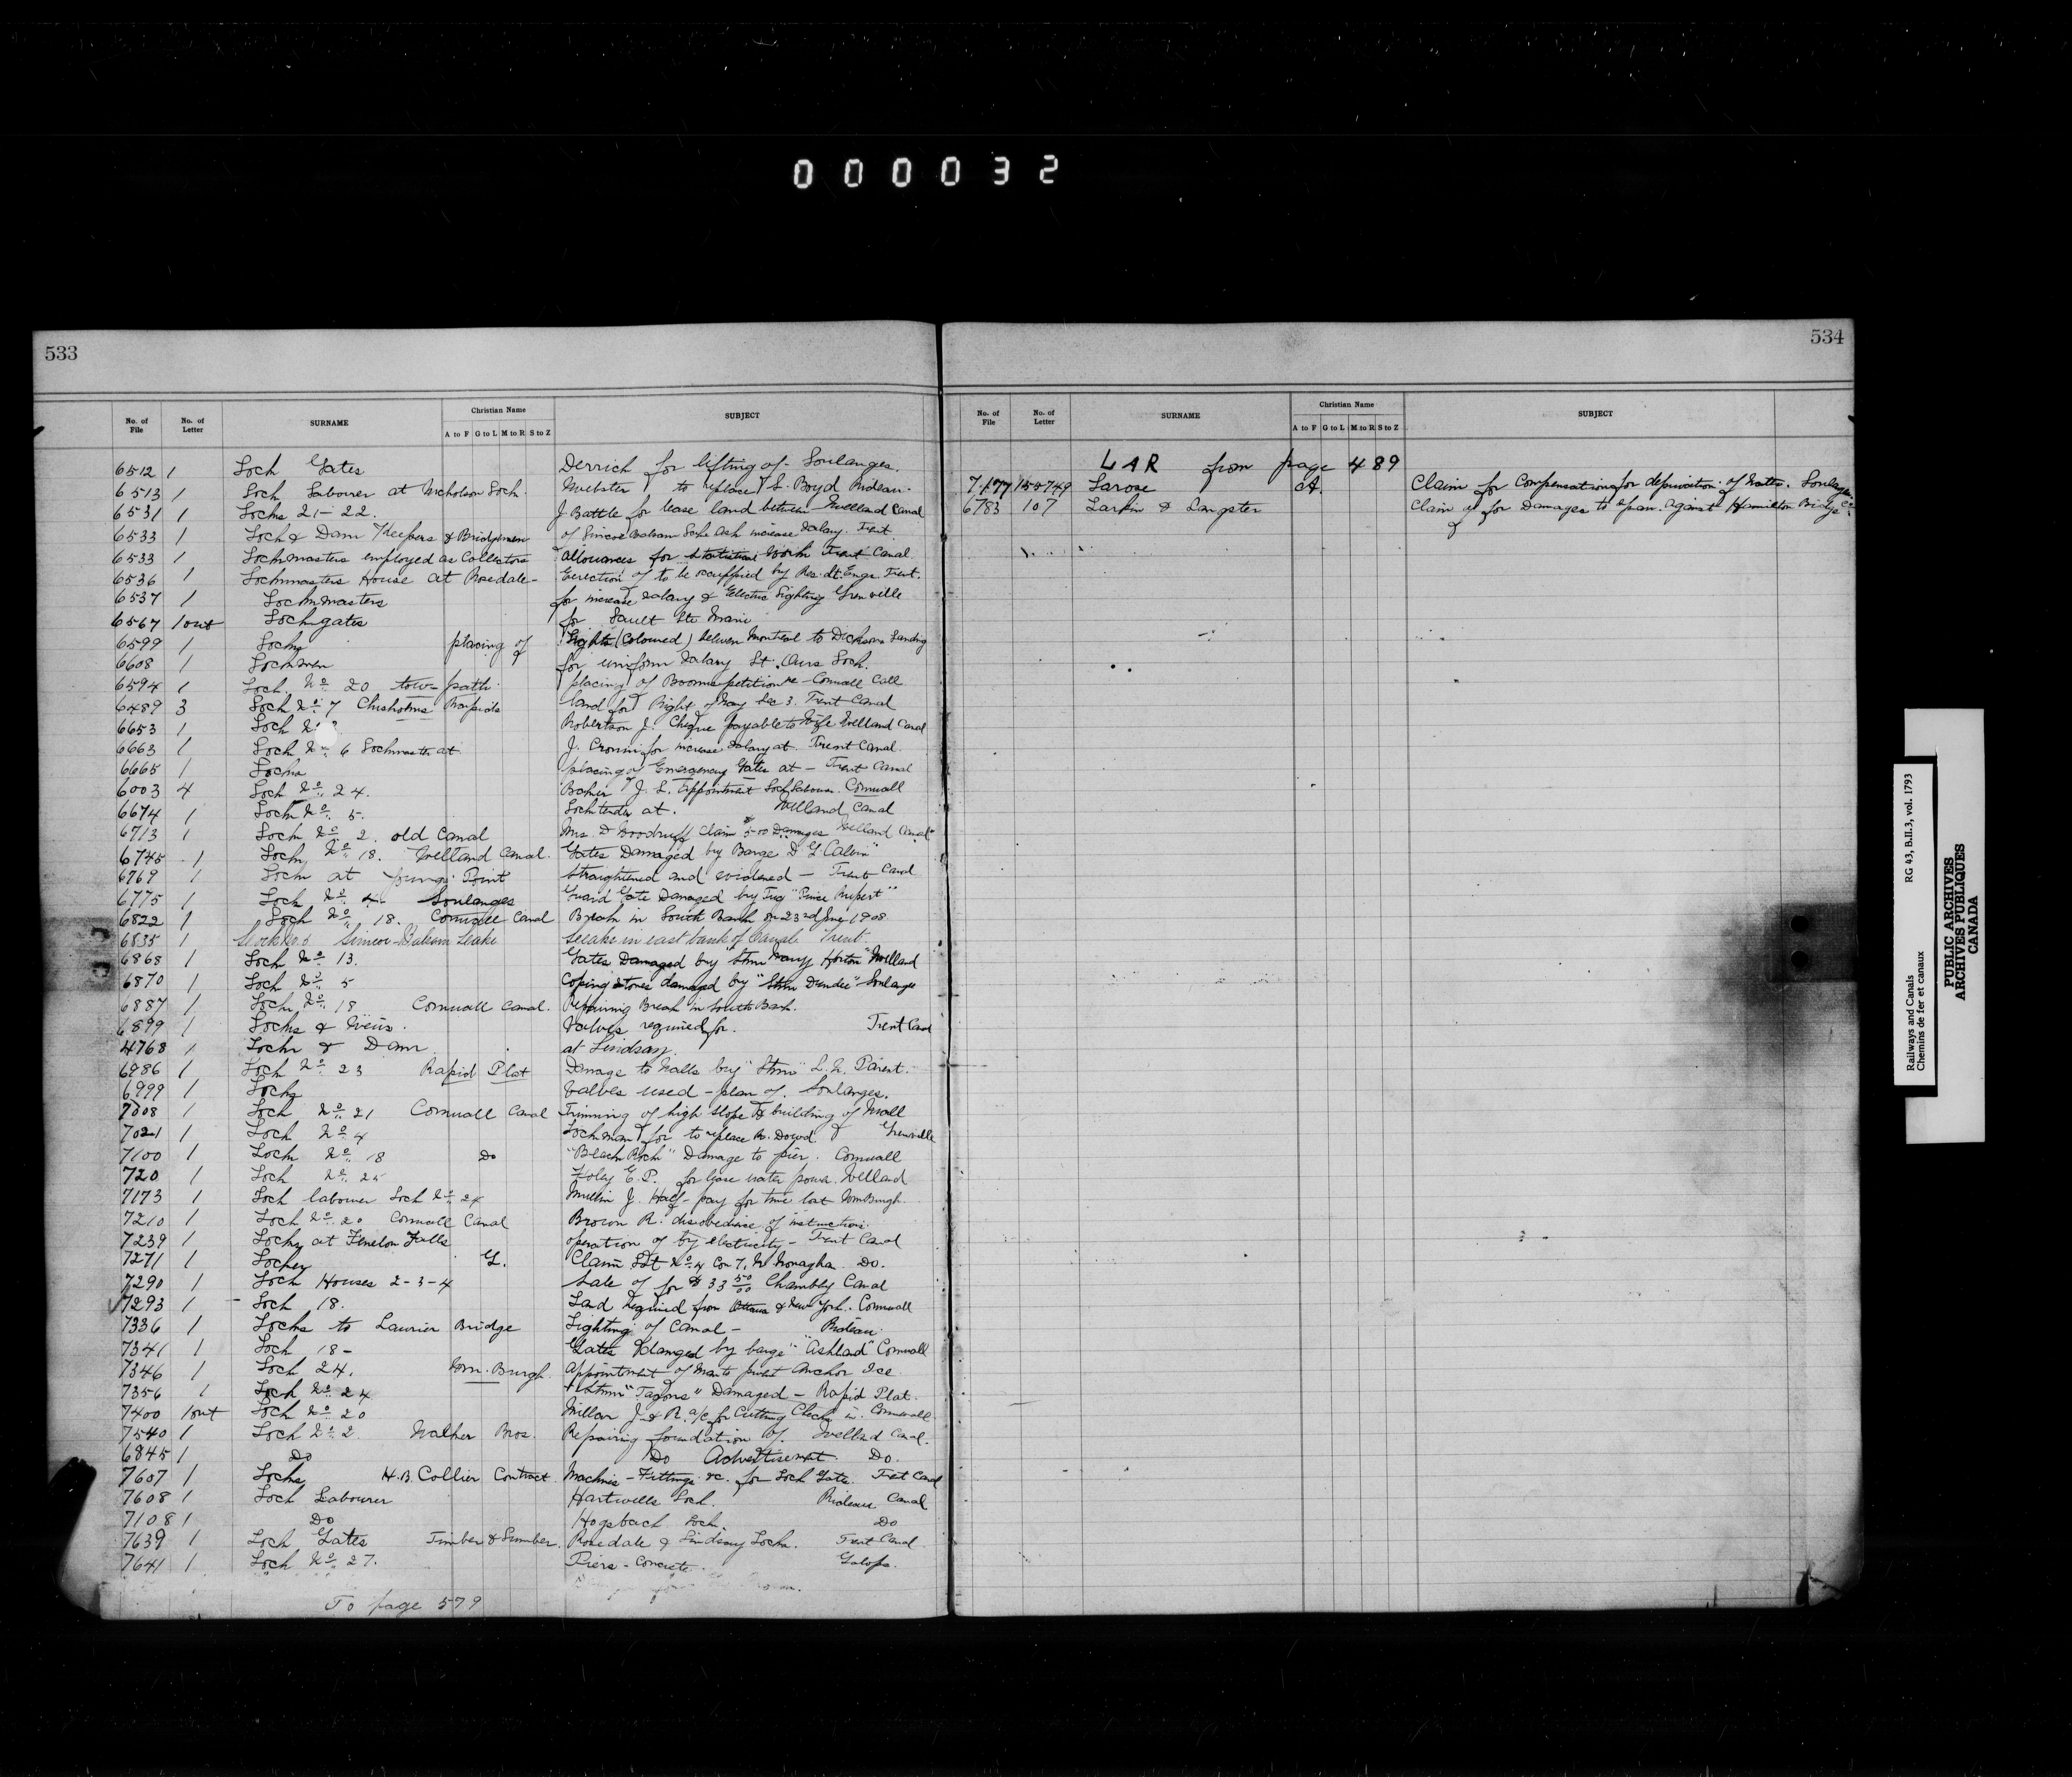 0 0 0 0 3 2
533
No. of File No. of Letter SURNAME Christian Name A to F G to L M to R S to Z SUBJECT
6512 1 Lock Gates Derrick for lifting of - Soulanges.
6513 1 Lock Labourer at Nicholson Lock. Webster to replace S. Boyd Rideau.
6531 1 Locks 21-22. J. Battle for lease land between Welland Canal
6533 1 Lock & Dam Keepers & Bridgemen of Simcoe Balsam Lake Ask increase Salary. Trent
6533 1 Lockmasters employed as Collectors allowances for Statistical Work Trent Canal
6536 1 Lockmasters House at Rosedale - Erection of to be occupied by Res. Engr. Trent.
6537 1 Lockmasters for increase Salary & Electric Lighting Grenville
6567 1 out Lockgates for Sault Ste Marie
6599 1 Locks placing of Lights (Coloured) between Montreal to Dicksons Landing
6608 1 Lockmen for uniform Salary St. Ours Lock.
6594 1 Lock No. 20 tow-path placing of Booms petition re - Cornwall Call
6489 3 Lock No. 7 Chisholms Rapids land for Right of Way Sec 3. Trent Canal
6653 1 Lock Robertson J. Cheque payable to Wife Welland Canal
6663 1 Lock No. 6 Lockmaster at J. Cronin for increase Salary at Trent Canal
6665 1 Locks placing of Emergency Gates at - Trent Canal
6003 4 Lock No. 24. Baker J. S. Appointment Lock Labourer. Cornwall
6674 1 Lock No. 5. Locktender at. Welland Canal
6713 1 Lock No. 2. old Canal Mrs. D. Woodruff Claim $500 Damages Welland Canal
6745 1 Lock No. 18. Welland Canal. Gates Damaged by Barge "D G Calvin"
6769 1 Lock at Youngs Point Straightened and widened - Trent Canal
6775 1 Lock No. 4 - Soulanges Guard Gate Damaged by Tug "Prince Rupert"
6822 1 Lock No. 18. Cornwall Canal Break in South Bank on 23rd June 1908
6835 1 Simcoe-Balsam Lake Leake in east bank of Canal Trent.
6868 1 Lock No. 13. Gates Damaged by Stmr Horton Welland
6870 1 Lock No. 5 Coping stones damaged by "Stmr Dundee" Soulanges
6887 1 Lock No. 18 Cornwall Canal. Repairing Break in South Bank.
6899 1 Locks & Weirs. Valves required for. Trent Canal
4768 1 Locks & Dam at Lindsay.
6986 1 Lock No. 23 Rapid Plat Damage to Walls by "Stmr" L. N. Parent.
6999 1 Locks Valves used - plan of. Soulanges.
7008 1 Lock No. 21 Cornwall Canal Trimming of high slope & building of Wall
7021 1 Lock No. 4 Lockman for to replace R. Dowd. Grenville
7100 1 Lock No. 18 Do "Black Rock" Damage to pier. Cornwall
720 1 Lock No. 25 Foley E. P. for lease water power. Welland
7173 1 Lock labourer Lock No. 24 Mullin J. Half-pay for time lost Wmsburgh.
7210 1 Lock No. 20 Cornwall Canal Brown R. disobedience of instructions.
7239 1 Locks at Fenelon Falls operation of by electricity - Trent Canal
7271 1 G. Claim Lot No. 4 Con 7, N. Monaghan Do.
7290 1 Lock Houses 2-3-4 Sale of for $33 50/00 Chambly Canal
7293 1 Lock 18. Land required from Ottawa & New York. Cornwall
7336 1 Locks to Laurier Bridge Lighting of Canal - Rideau.
7341 1 Lock 18 - Gates damaged by barge "Ashland" Cornwall
7346 1 Lock 24. Wm. Burgh. appointment of Anchor Ice
7356 1 Lock No. 24 Stmr Damaged - Rapid Plat.
7400 1 out Lock No. 20 Millar J. & R. a/c for Cutting Cornwall
7540 1 Lock No. 2. Walker Bros. Repairing foundation of. Welland Canal.
6845 1 Do Do Advertisement Do.
7607 1 Locks H.B. Collier Contract. Machine - Fittings &c. for Lock Gates. Trent Canal
7608 1 Lock Labourer Hartwells Lock. Rideau Canal
7108 1 Do Hogsback Lock. Do
7639 1 Lock Gates Timber & Lumber. Rosedale & Lindsay Locks. Trent Canal
7641 1 Lock No. 27. Piers - Concrete. Galops.
To page 579
534
No. of File No. of Letter SURNAME Christian Name A to F G to L M to R S to Z SUBJECT
LAR from page 489
7177 158749 Larose A. Claim for Compensation for deprivation of Water. Soulanges.
6783 107 Larkin & Sangster Claim of for Damages to Span. Against Hamilton Bridge Co.
Railways and Canals RG 43, B.II.3, vol. 1793
Chemins de fer et canaux
PUBLIC ARCHIVES
ARCHIVES PUBLIQUES
CANADA